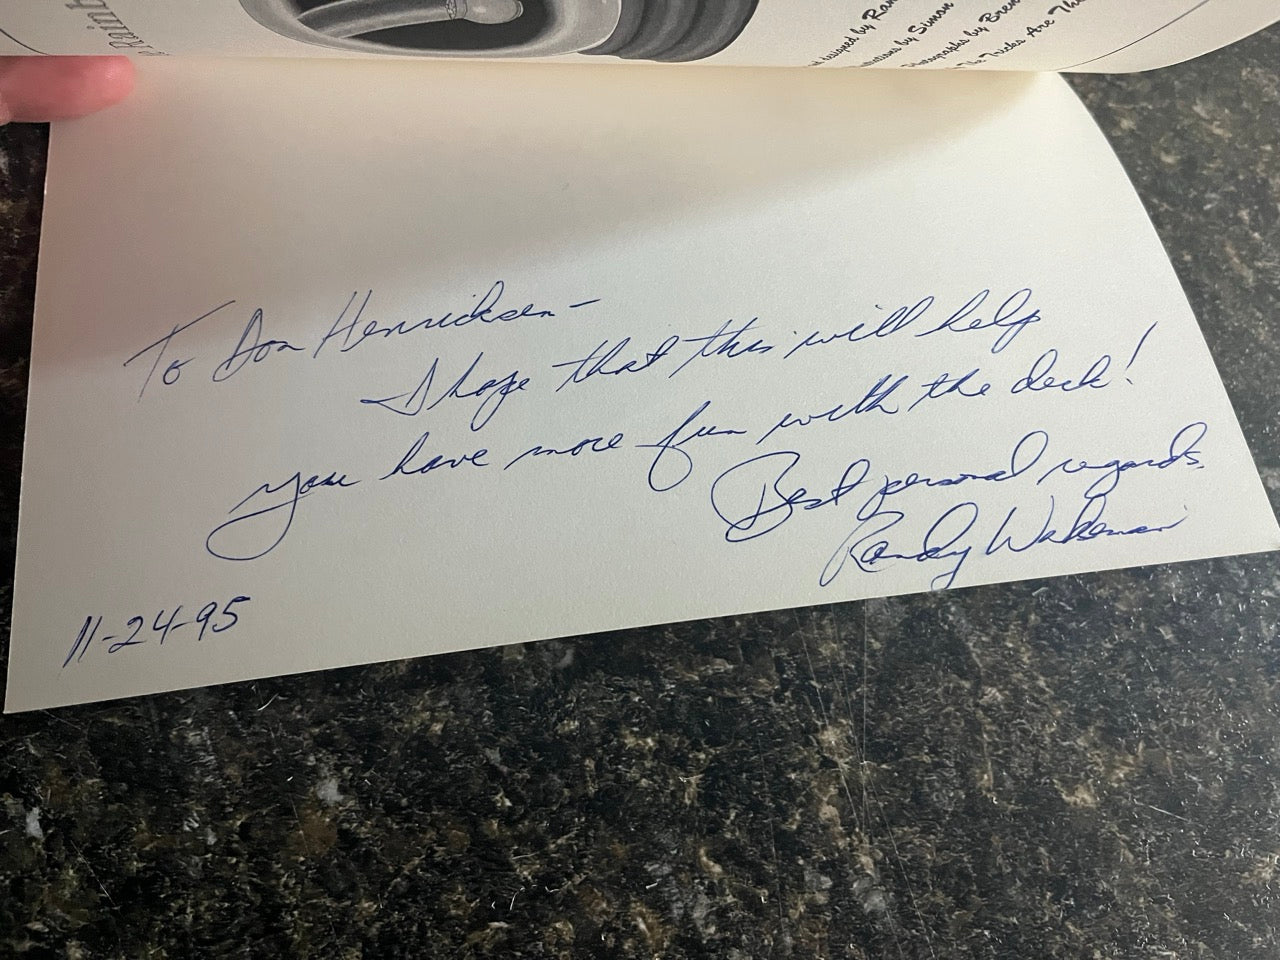 Rainb
designed by Ran
by Simon
Photographs by Bren
The Tricks Are The
To Don Henricksen-
I hope that this will help
you have more fun with the deck!
Best personal regards,
Randy Wakeman
11-24-95